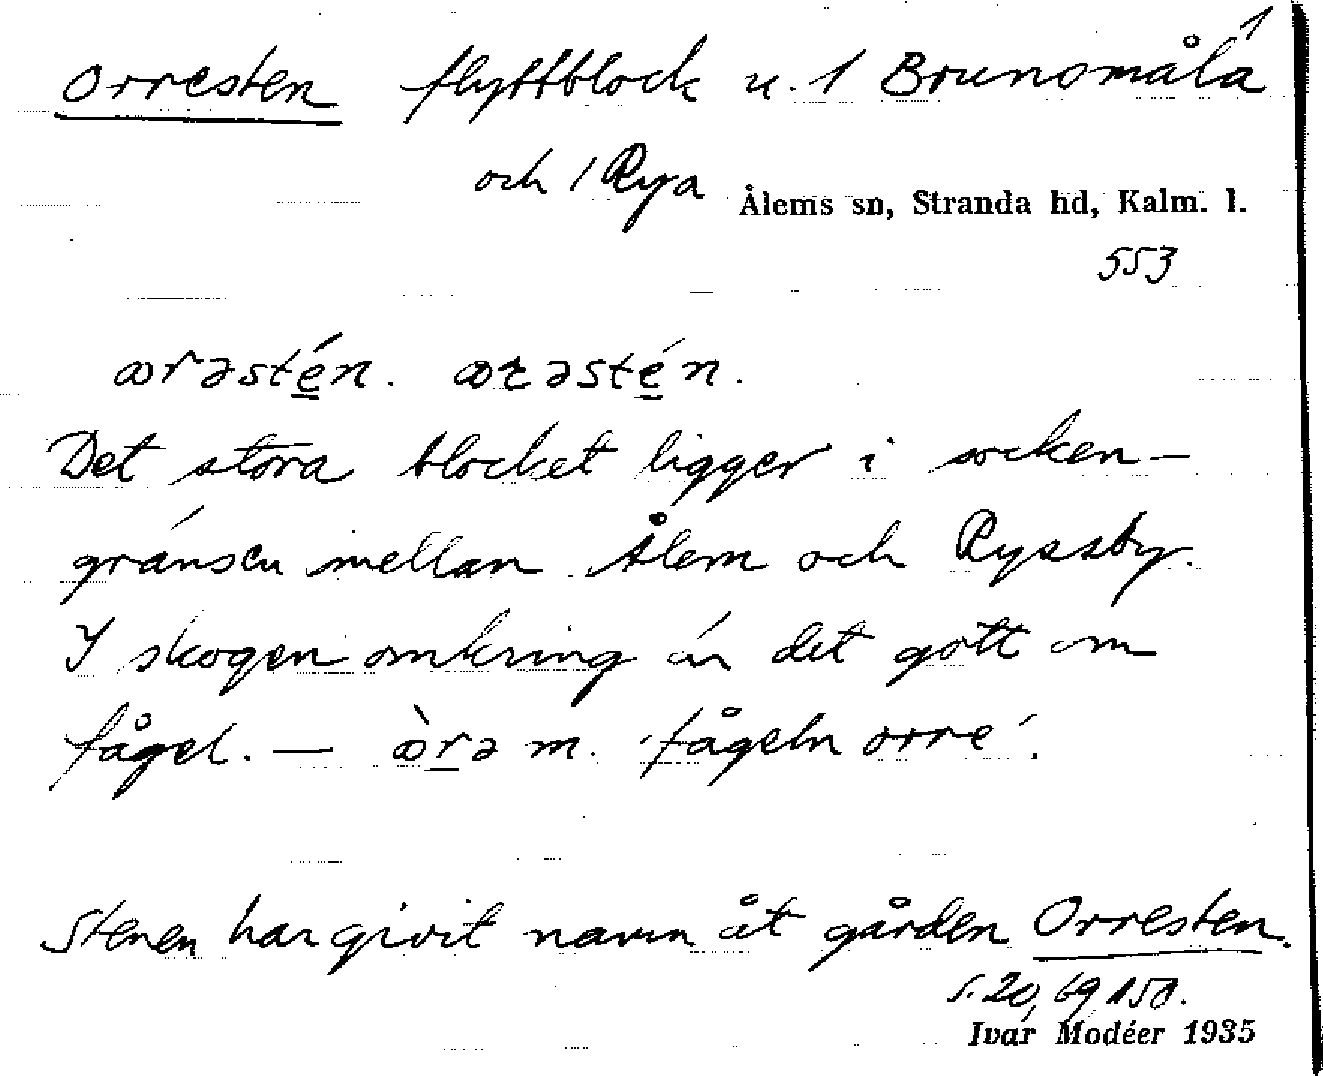 Orresten flyttblock u. 1 Brunsmåla 1
och 1 Rya Ålems sn, Stranda hd, Kalm. l.
553
ꝏrəsté̲n. ꝏɽəsté̲n.
Det stora blocket ligger i socken-
gränsen mellan Ålem och Ryssby.
I skogen omkring är det gott om
fågel. — ꝏ̀r̲ə m. 'fågeln orre'.
Stenen har givit namn åt gården Orresten.
s. 20, 69, 150.
Ivar Modéer 1935